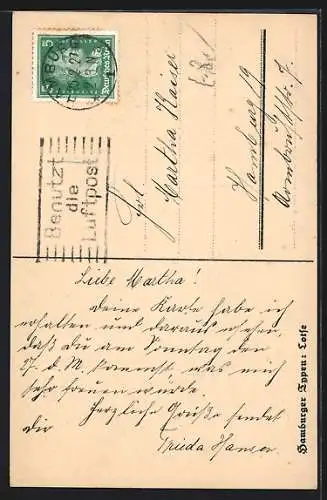 5
Deutsches Reich
5
HAMBURG
Benutzt
die
Luftpost
Frl.
Martha Kaiser
Hamburg 19
Liebe Martha!
deine Karte habe ich
erhalten und daraus ersehen,
daß du am Sonntag den
27. d. M. kommst, was mich
sehr freuen würde.
Herzliche Grüße sendet
dir
Frieda Hansen
Hamburger Typen: Lotse